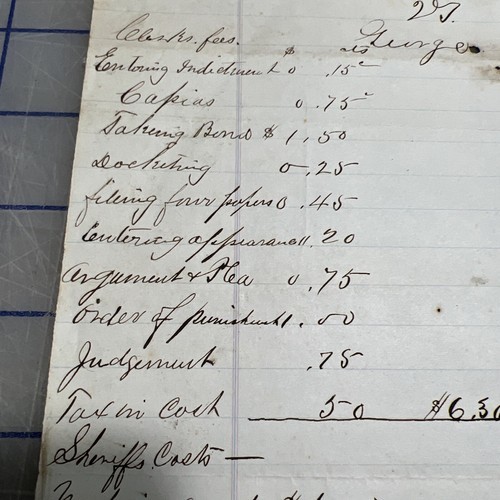 25.
Clerks. fees. $ cts George
Entering Indictment 0 .15
Capias 0 .75
Taking Bond $ 1.50
Docketing 0.25
filing four papers 0.45
Entering appearance .20
Arguement & Plea 0.75
order of punishment 1.00
Judgement .75
Tax in Cost 50 $6.30
Sheriffs. Costs —